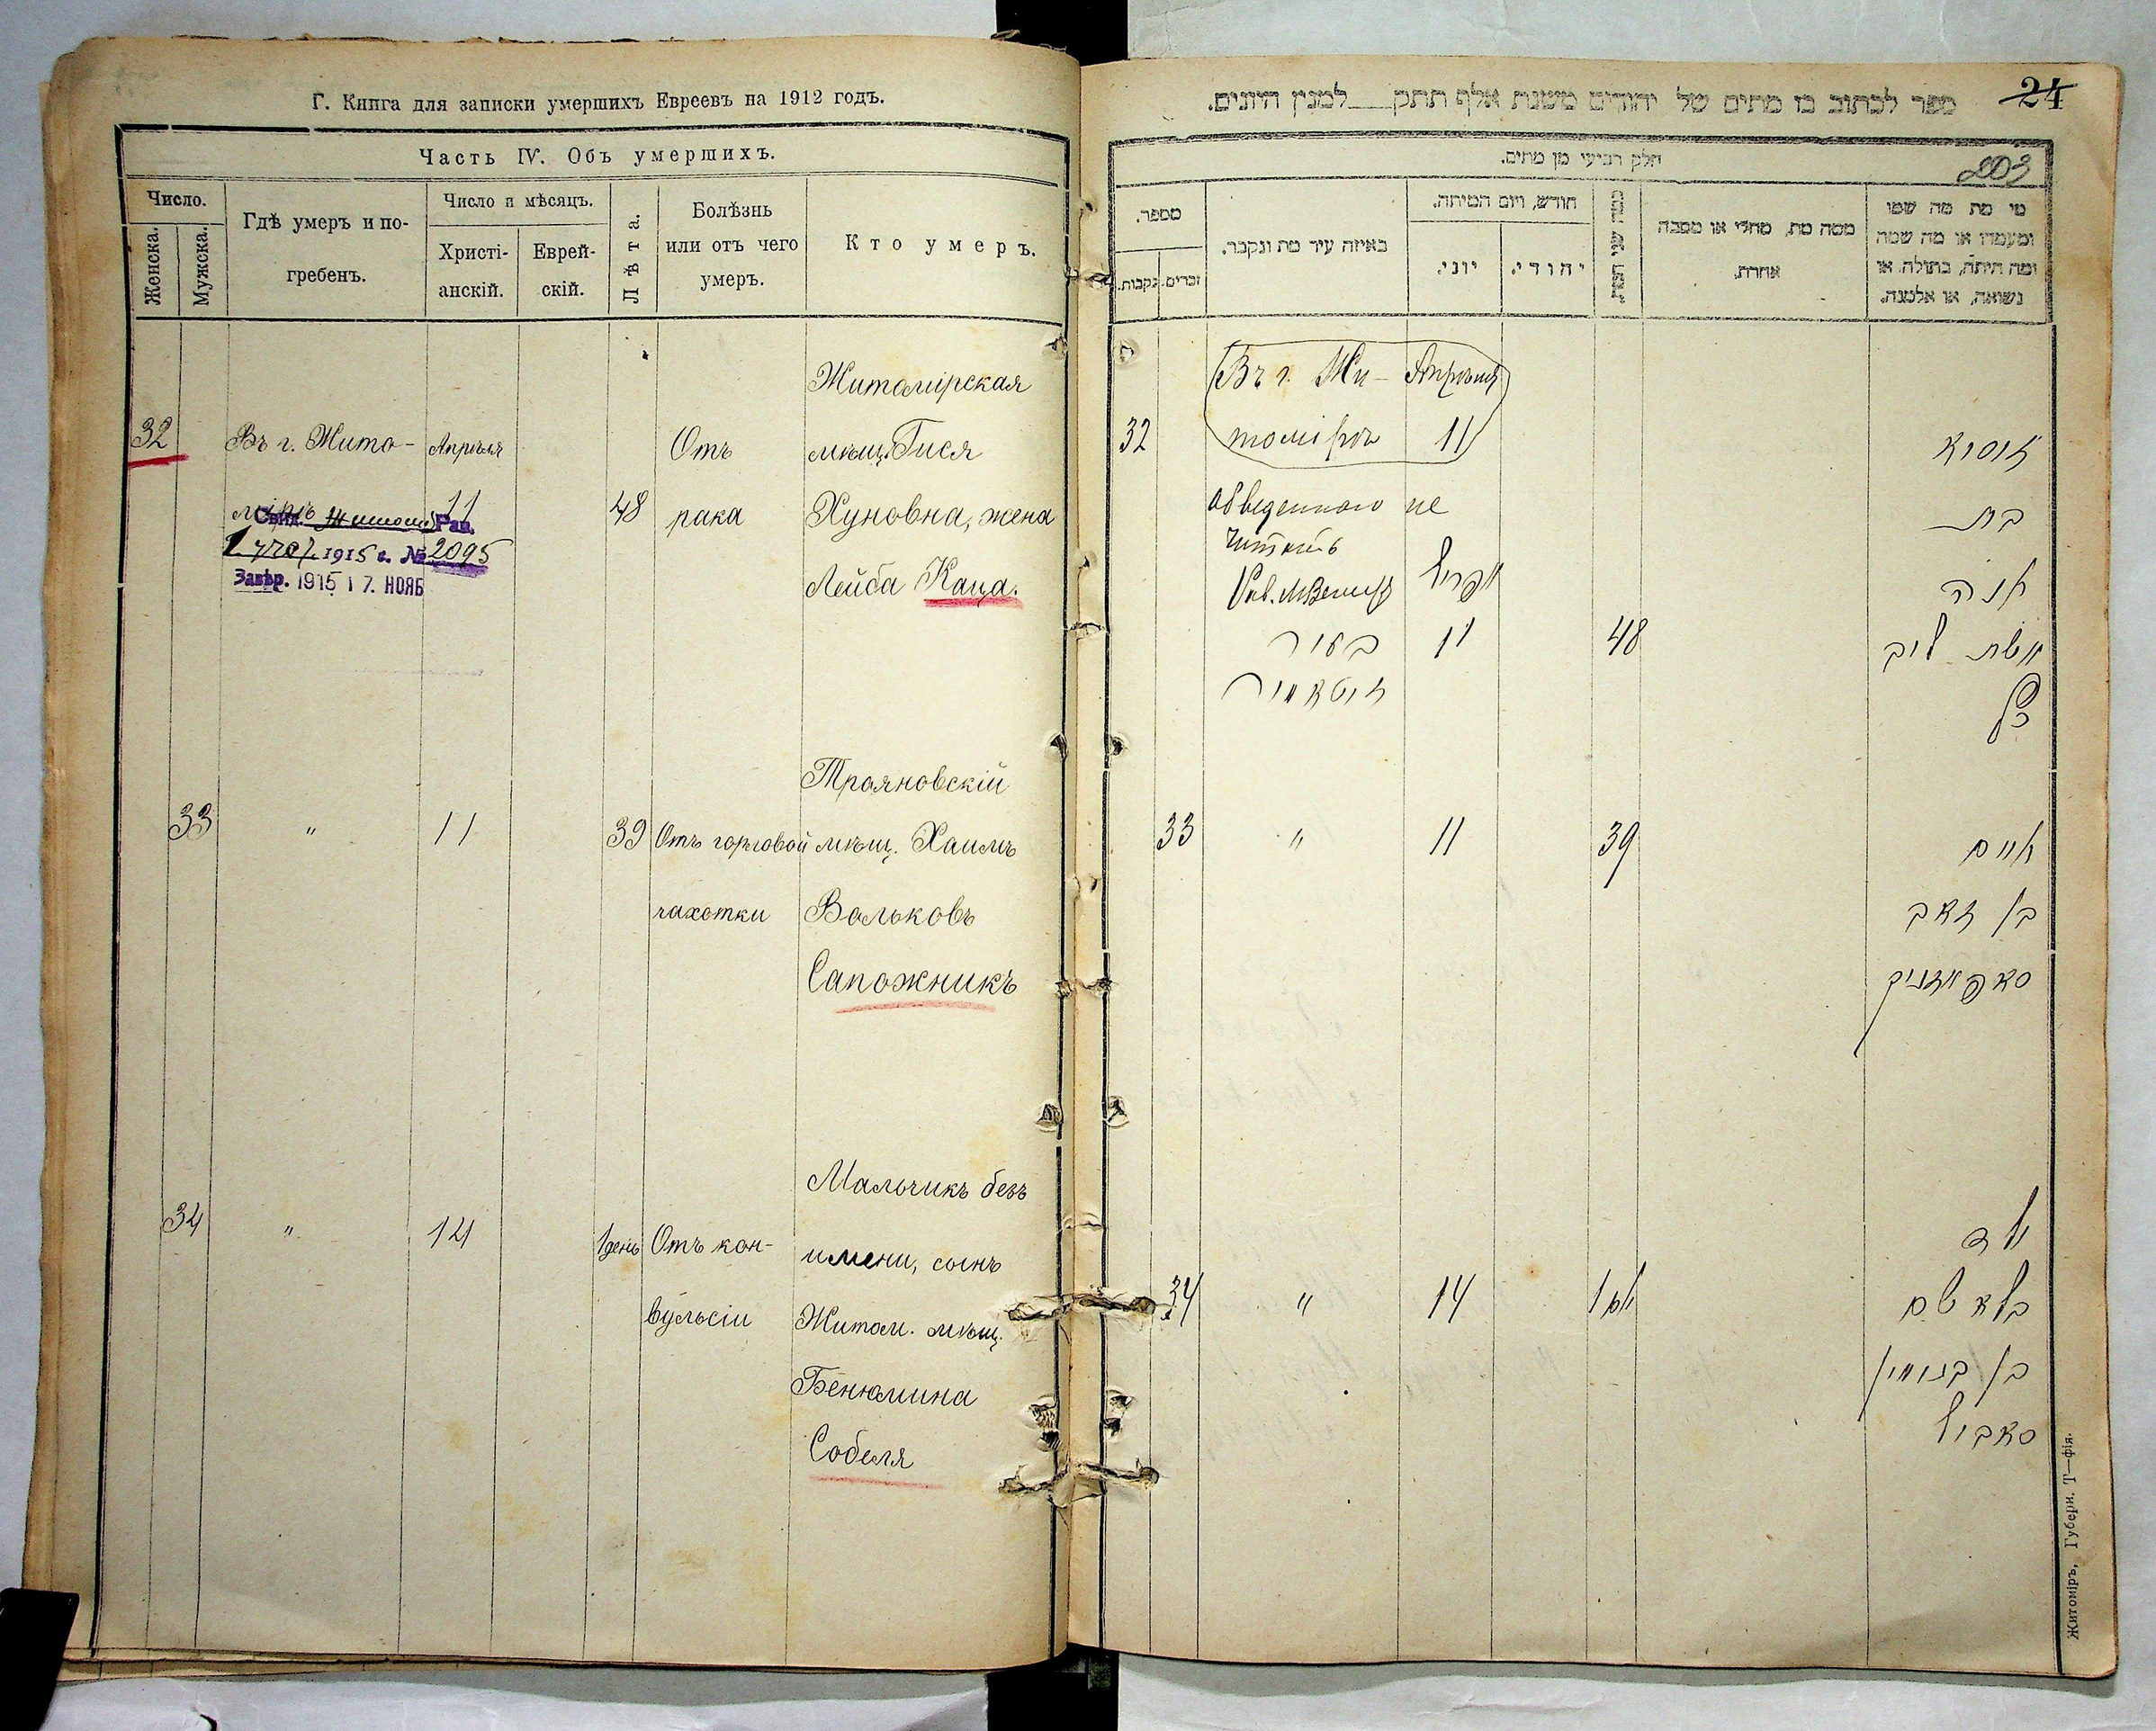 Г. Книга для записки умершихъ Евреевъ на 1912 годъ.
Часть IV. Объ умершихъ.
Число.
Женска.
Мужска.
Гдѣ умеръ и по-
гребенъ.
Число и мѣсяцъ.
Христі-
анскій.
Еврей-
скій.
Лѣта.
Болѣзнь
или отъ чего
умеръ.
Кто умеръ.
Житомірская
32 Въ г. Жито- Апрѣля Отъ мѣщ. Гися
мірѣ 11 48 рака Хуновна, жена
Лейба Каца.
1915 г. № 2095
Завѣр. 1915 17. НОЯБ
Трояновскій
33 " 11 39 Отъ горловой мѣщ. Хаимъ
чахотки Вольковъ
Сапожникъ
Мальчикъ безъ
34 " 14 1 день Отъ кон- имени, сынъ
вульсіи Житом. мѣщ.
Бенюмина
Собеля
24
ספר לכתוב בו מתים של יהודים משנת אלף תתק___למנין היונים.
203
חלק רביעי מן מתים.
מי מת מה שמו
ומעמדו או מה שמה
ומה היתה, בתולה או
נשואה, או אלמנה.
ממה מת, מחלי או מסבה
אחרת.
חודש, ויום המיתה.
יהודי.
יוני.
באיזה עיר מת ונקבר.
מספר.
זכרים.
נקבות.
Въ г. Жи- Апрѣля
32 томірѣ 11
обведенного не
читать
אפריל
בת
11 48 אשת ליב
בעיר
זיטאמיר
כץ
33 " 11 39 חיים
בן וואלף
סאפאזניק
ילד
34 " 14 1 יום בלא שם
בן בנימין
סאביל
Житоміръ, Губерн. Т—фія.